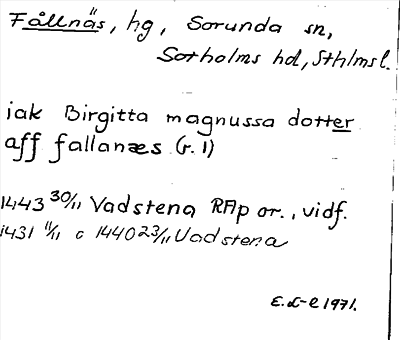 Fållnäs, hg, Sorunda sn,
Sotholms hd, Sthlmsl.
iak Birgitta magnussa dotter
aff fallanæs (r. 1)
1443 30/11 Vadstena RAp or., vidf.
1431 11/11 o 1440 23/11 Vadstena
E.L-e 1971.